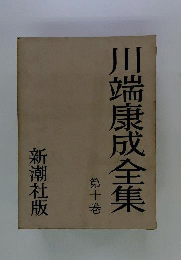 川端康成全集
第十巻
新潮社版